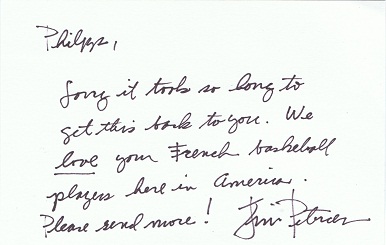 Philipp,
Sorry it took so long to
get this back to you. We
love your French basketball
players here in America.
Please send more! Jim Petersen